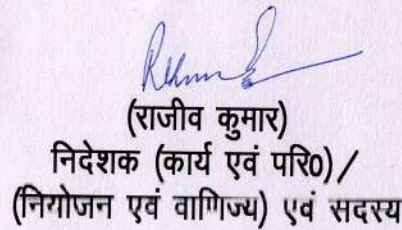 (राजीव कुमार)
निदेशक (कार्य एवं परि०)/
(नियोजन एवं वाणिज्य) एवं सदस्य